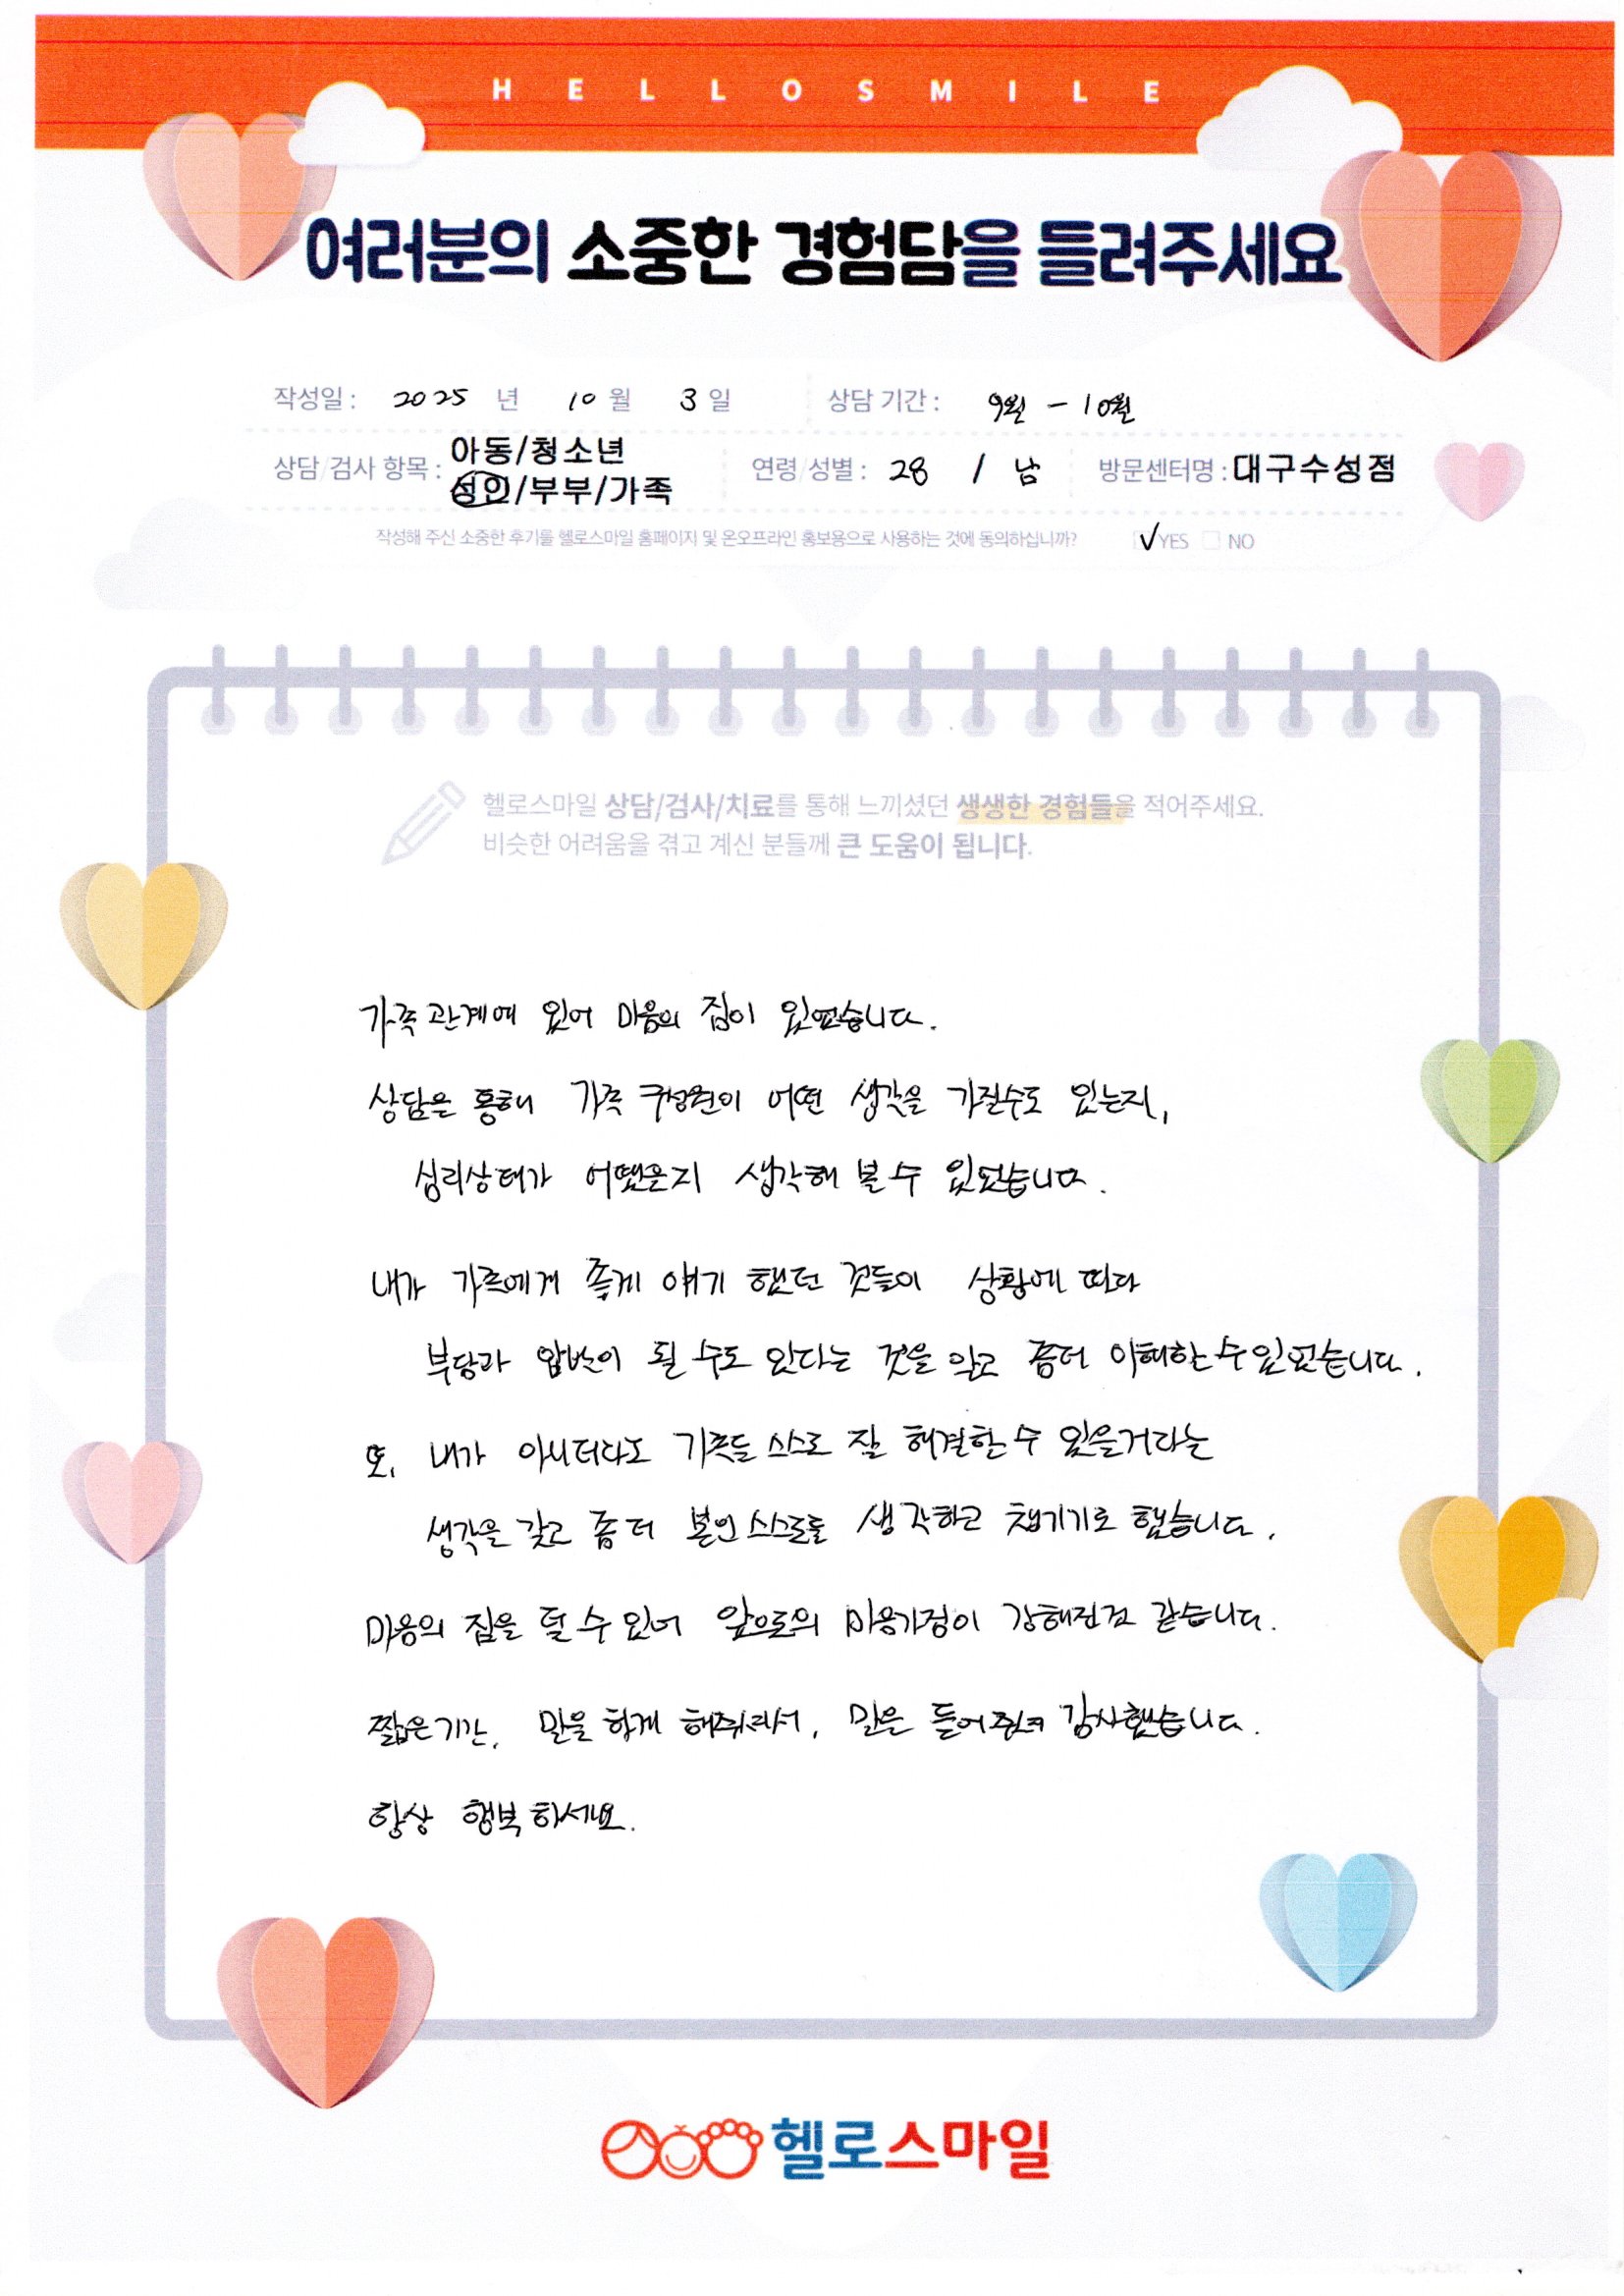 HELLOSMILE
여러분의 소중한 경험담을 들려주세요
작성일 : 2025 년 10 월 3 일 상담 기간 : 9월 - 10월
상담/검사 항목 : 아동/청소년 성인/부부/가족 연령/성별 : 28 / 남 방문센터명 : 대구수성점
작성해 주신 소중한 후기를 헬로스마일 홈페이지 및 온오프라인 홍보용으로 사용하는 것에 동의하십니까? ✓YES □ NO
헬로스마일 상담/검사/치료를 통해 느끼셨던 생생한 경험들을 적어주세요.
비슷한 어려움을 겪고 계신 분들께 큰 도움이 됩니다.
가족관계에 있어 마음의 짐이 있었습니다.
상담을 통해 가족 구성원이 어떤 생각을 가질수도 있는지,
심리상태가 어땠을지 생각해 볼 수 있었습니다.
내가 가족에게 좋게 얘기 했던 것들이 상황에 따라
부담과 압박이 될 수도 있다는 것을 알고 좀더 이해할 수 있었습니다.
또, 내가 아니더라도 가족들 스스로 잘 해결할 수 있을거라는
생각을 갖고 좀 더 본인 스스로를 생각하고 챙기기로 했습니다.
마음의 짐을 덜 수 있어 앞으로의 마음가짐이 강해진것 같습니다.
짧은기간, 말을 하게 해주셔서, 말을 들어주셔 감사했습니다.
항상 행복하세요.
헬로스마일